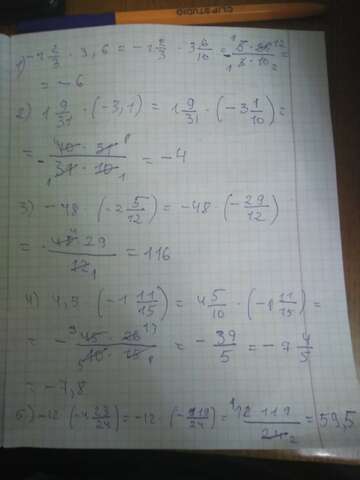 CLIPSTUDIO
1) -1 2/3 · 3,6 = -1 2/3 · 3 6/10 = - 5 · 36 / 3 · 10 =
= -6
2) 1 9/31 · (-3,1) = 1 9/31 · (-3 1/10) =
= - 40 · 31 / 31 · 10 = -4
3) -48 (-2 5/12) = -48 · (-29/12)
= 48 · 29 / 12 = 116
4) 4,5 (-1 11/15) = 4 5/10 · (-1 11/15) =
= - 45 · 26 / 10 · 15 = - 39/5 = -7 4/5
= -7,8
5) -12 · (-4 23/24) = -12 · (-119/24) = 12 119 / 24 = 59,5